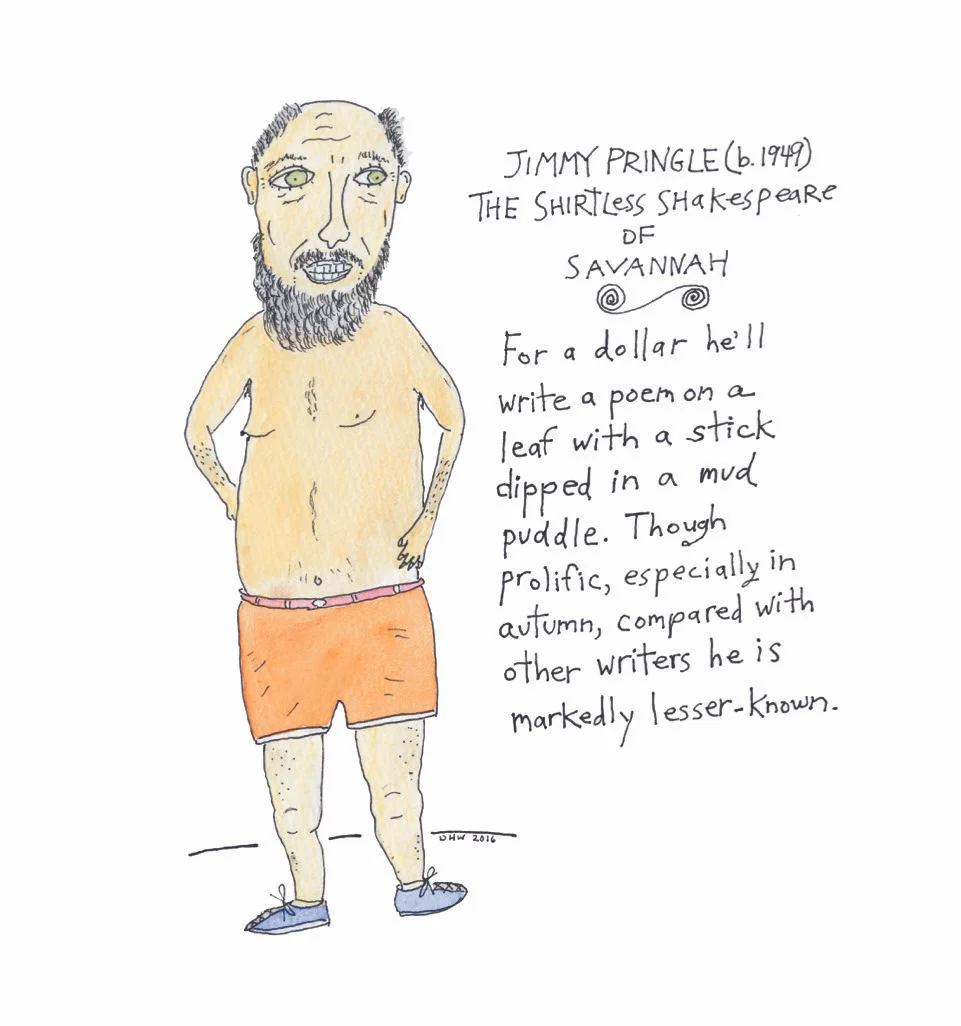 JIMMY PRINGLE (b. 1949)
THE SHIRTLESS SHAKESPEARE
OF
SAVANNAH
For a dollar he'll
write a poem on a
leaf with a stick
dipped in a mud
puddle. Though
prolific, especially in
autumn, compared with
other writers he is
markedly lesser-known.
JHW 2016